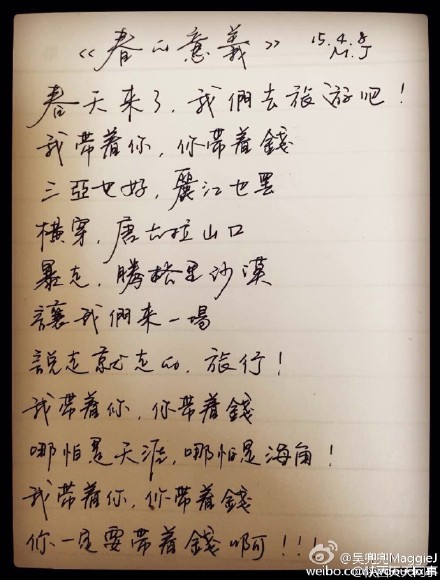 《春的意義》 15.4.8
M.J
春天來了，我們去旅游吧！
我帶着你，你帶着錢
三亞也好，麗江也罢
橫穿，唐古拉山口
暴走，騰格里沙漠
讓我們来一場
說走就走的，旅行！
我帶着你，你帶着錢
哪怕是天涯，哪怕是海角！
我帶着你，你帶着錢
你一定要帶着錢啊！！！
@吴兜兜MaggieJ
weibo.com/